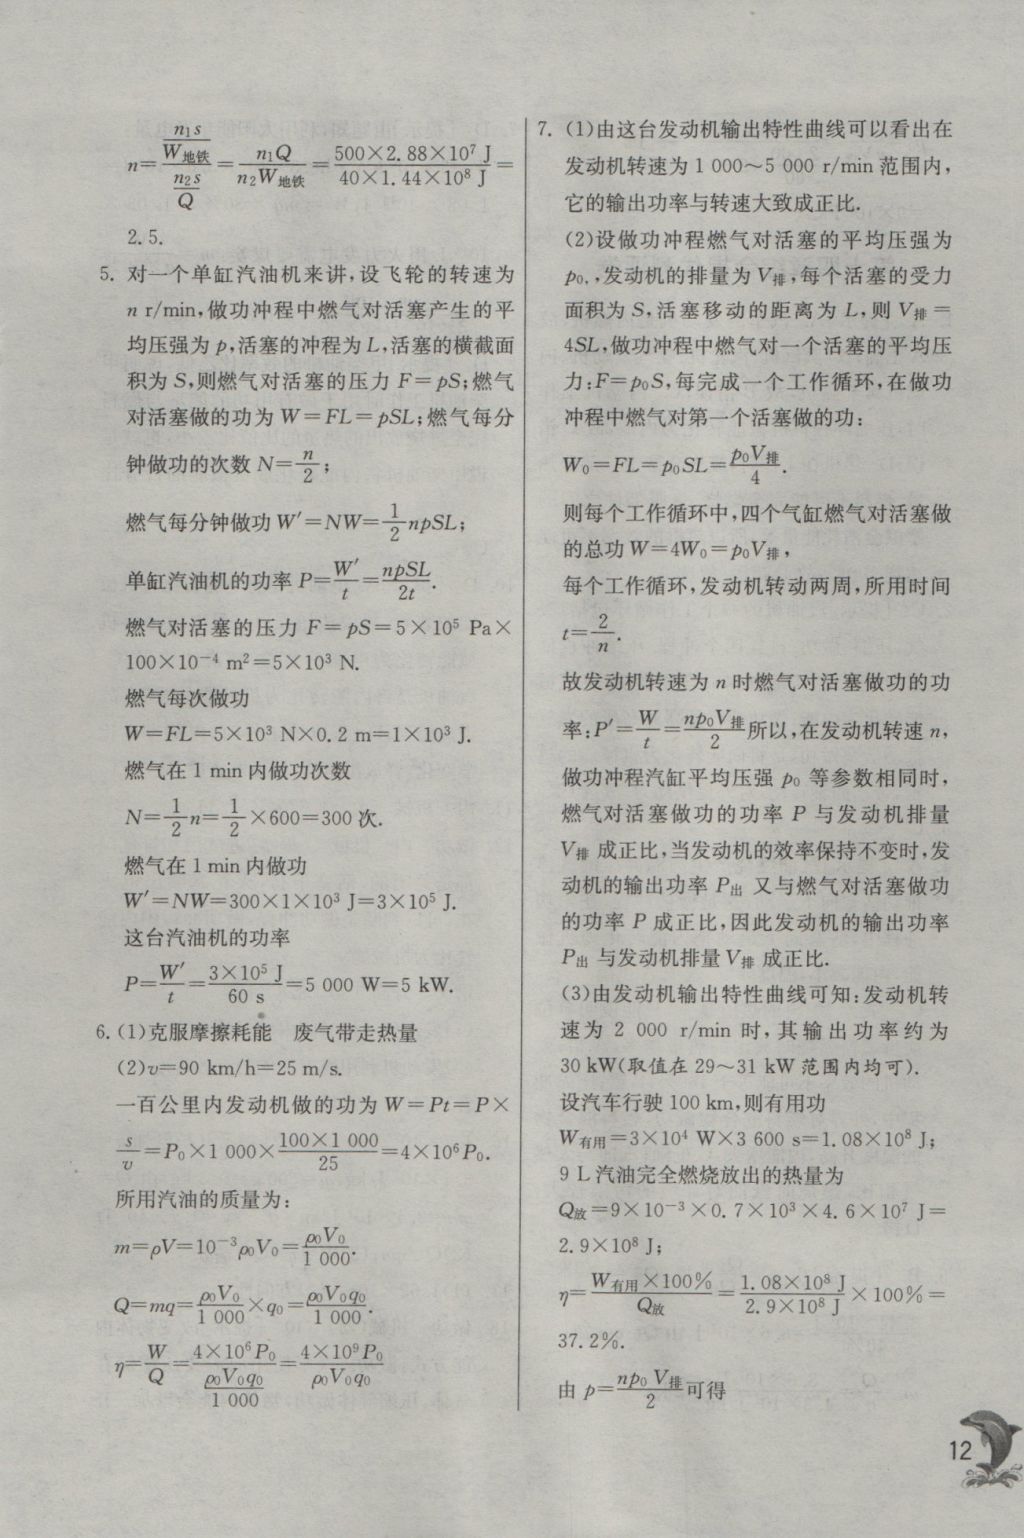 n=(n₁s/W地铁)/(n₂s/Q)=n₁Q/n₂W地铁=500×2.88×10⁷ J/40×1.44×10⁸ J=
2.5.
5. 对一个单缸汽油机来讲,设飞轮的转速为
n r/min,做功冲程中燃气对活塞产生的平
均压强为 p,活塞的冲程为 L,活塞的横截面
积为 S,则燃气对活塞的压力 F=pS;燃气
对活塞做的功为 W=FL=pSL;燃气每分
钟做功的次数 N=n/2;
燃气每分钟做功 W′=NW=1/2 npSL;
单缸汽油机的功率 P=W′/t=npSL/2t.
燃气对活塞的压力 F=pS=5×10⁵ Pa×
100×10⁻⁴ m²=5×10³ N.
燃气每次做功
W=FL=5×10³ N×0.2 m=1×10³ J.
燃气在 1 min 内做功次数
N=1/2 n=1/2×600=300 次.
燃气在 1 min 内做功
W′=NW=300×1×10³ J=3×10⁵ J.
这台汽油机的功率
P=W′/t=3×10⁵ J/60 s=5 000 W=5 kW.
6. (1)克服摩擦耗能 废气带走热量
(2)v=90 km/h=25 m/s.
一百公里内发动机做的功为 W=Pt=P×
s/v=P₀×1 000×100×1 000/25=4×10⁶P₀.
所用汽油的质量为:
m=ρV=10⁻³ρ₀V₀=ρ₀V₀/1 000.
Q=mq=ρ₀V₀/1 000×q₀=ρ₀V₀q₀/1 000.
η=W/Q=4×10⁶P₀/(ρ₀V₀q₀/1 000)=4×10⁹P₀/ρ₀V₀q₀
7. (1)由这台发动机输出特性曲线可以看出在
发动机转速为 1 000～5 000 r/min 范围内,
它的输出功率与转速大致成正比.
(2)设做功冲程燃气对活塞的平均压强为
p₀.,发动机的排量为 V排,每个活塞的受力
面积为 S,活塞移动的距离为 L,则 V排=
4SL,做功冲程中燃气对一个活塞的平均压
力:F=p₀S,每完成一个工作循环,在做功
冲程中燃气对第一个活塞做的功:
W₀=FL=p₀SL=p₀V排/4.
则每个工作循环中,四个气缸燃气对活塞做
的总功 W=4W₀=p₀V排,
每个工作循环,发动机转动两周,所用时间
t=2/n.
故发动机转速为 n 时燃气对活塞做功的功
率:P′=W/t=np₀V排/2所以,在发动机转速 n,
做功冲程汽缸平均压强 p₀ 等参数相同时,
燃气对活塞做功的功率 P 与发动机排量
V排 成正比,当发动机的效率保持不变时,发
动机的输出功率 P出 又与燃气对活塞做功
的功率 P 成正比,因此发动机的输出功率
P出 与发动机排量 V排 成正比.
(3)由发动机输出特性曲线可知:发动机转
速为 2 000 r/min 时,其输出功率约为
30 kW(取值在 29～31 kW 范围内均可).
设汽车行驶 100 km,则有用功
W有用=3×10⁴ W×3 600 s=1.08×10⁸ J;
9 L 汽油完全燃烧放出的热量为
Q放=9×10⁻³×0.7×10³×4.6×10⁷ J=
2.9×10⁸ J;
η=W有用×100%/Q放=1.08×10⁸ J/2.9×10⁸ J×100%=
37.2%.
由 p=np₀V排/2可得
12